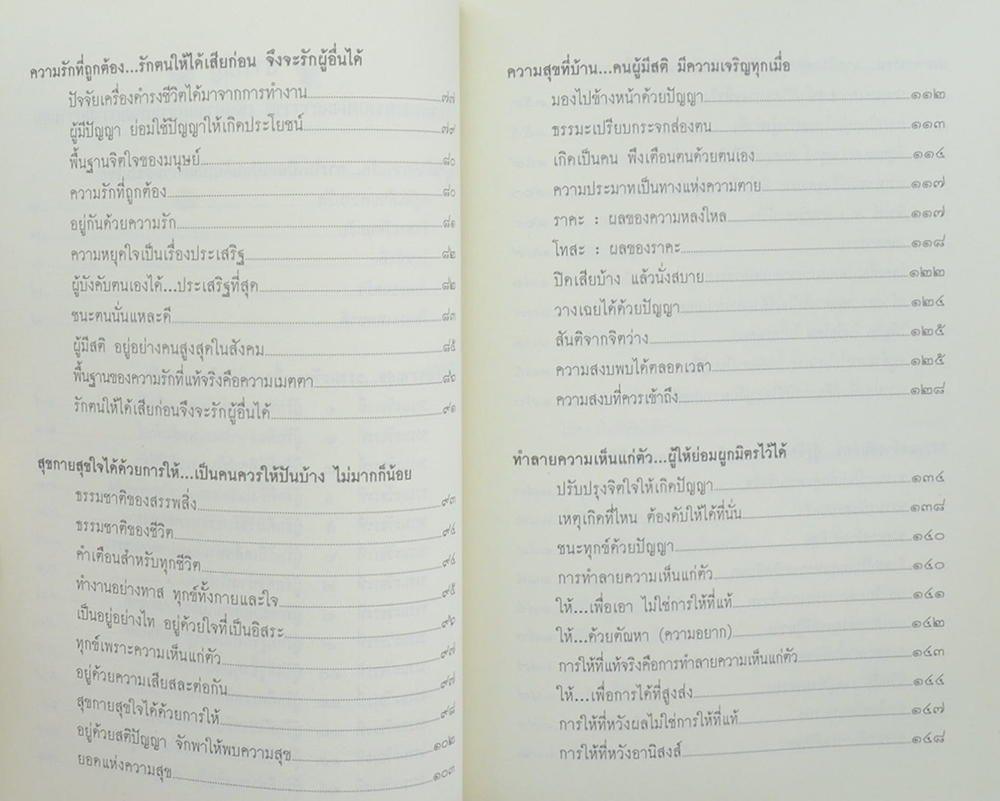 ความรักที่ถูกต้อง...รักตนให้ได้เสียก่อน จึงจะรักผู้อื่นได้
ปัจจัยเครื่องดำรงชีวิตได้มาจากการทำงาน ๗๗
ผู้มีปัญญา ย่อมใช้ปัญญาให้เกิดประโยชน์ ๗๙
พื้นฐานจิตใจของมนุษย์ ๘๐
ความรักที่ถูกต้อง ๘๐
อยู่กันด้วยความรัก ๘๑
ความหยุดใจเป็นเรื่องประเสริฐ ๘๒
ผู้บังคับตนเองได้...ประเสริฐที่สุด ๘๒
ชนะตนนั่นแหละดี ๘๓
ผู้มีสติ อยู่อย่างคนสูงสุดในสังคม ๘๕
พื้นฐานของความรักที่แท้จริงคือความเมตตา ๘๖
รักตนให้ได้เสียก่อนจึงจะรักผู้อื่นได้ ๙๑
สุขกายสุขใจได้ด้วยการให้...เป็นคนควรให้ปันบ้าง ไม่มากก็น้อย
ธรรมชาติของสรรพสิ่ง ๙๓
ธรรมชาติของชีวิต ๙๔
คำเตือนสำหรับทุกชีวิต ๙๔
ทำงานอย่างทาส ทุกข์ทั้งกายและใจ ๙๕
เป็นอยู่อย่างไท อยู่ด้วยใจที่เป็นอิสระ ๙๖
ทุกข์เพราะความเห็นแก่ตัว ๙๗
อยู่ด้วยความเสียสละต่อกัน ๙๗
สุขกายสุขใจได้ด้วยการให้ ๙๘
อยู่ด้วยสติปัญญา จักพาให้พบความสุข ๑๐๒
ยอดแห่งความสุข ๑๐๓
ความสุขที่บ้าน...คนผู้มีสติ มีความเจริญทุกเมื่อ
มองไปข้างหน้าด้วยปัญญา ๑๑๒
ธรรมะเปรียบกระจกส่องตน ๑๑๓
เกิดเป็นคน พึงเตือนตนด้วยตนเอง ๑๑๔
ความประมาทเป็นทางแห่งความตาย ๑๑๗
ราคะ : ผลของความหลงใหล ๑๑๗
โทสะ : ผลของราคะ ๑๑๘
ปิดเสียบ้าง แล้วนั่งสบาย ๑๒๒
วางเฉยได้ด้วยปัญญา ๑๒๔
สันติจากจิตว่าง ๑๒๕
ความสงบพบได้ตลอดเวลา ๑๒๕
ความสงบที่ควรเข้าถึง ๑๒๘
ทำลายความเห็นแก่ตัว...ผู้ให้ย่อมผูกมิตรไว้ได้
ปรับปรุงจิตใจให้เกิดปัญญา ๑๓๔
เหตุเกิดที่ไหน ต้องดับให้ได้ที่นั่น ๑๓๘
ชนะทุกข์ด้วยปัญญา ๑๔๐
การทำลายความเห็นแก่ตัว ๑๔๐
ให้...เพื่อเอา ไม่ใช่การให้ที่แท้ ๑๔๑
ให้...ด้วยตัณหา (ความอยาก) ๑๔๒
การให้ที่แท้จริงคือการทำลายความเห็นแก่ตัว ๑๔๓
ให้...เพื่อการได้ที่สูงส่ง ๑๔๔
การให้ที่หวังผลไม่ใช่การให้ที่แท้ ๑๔๗
การให้ที่หวังอานิสงส์ ๑๔๘